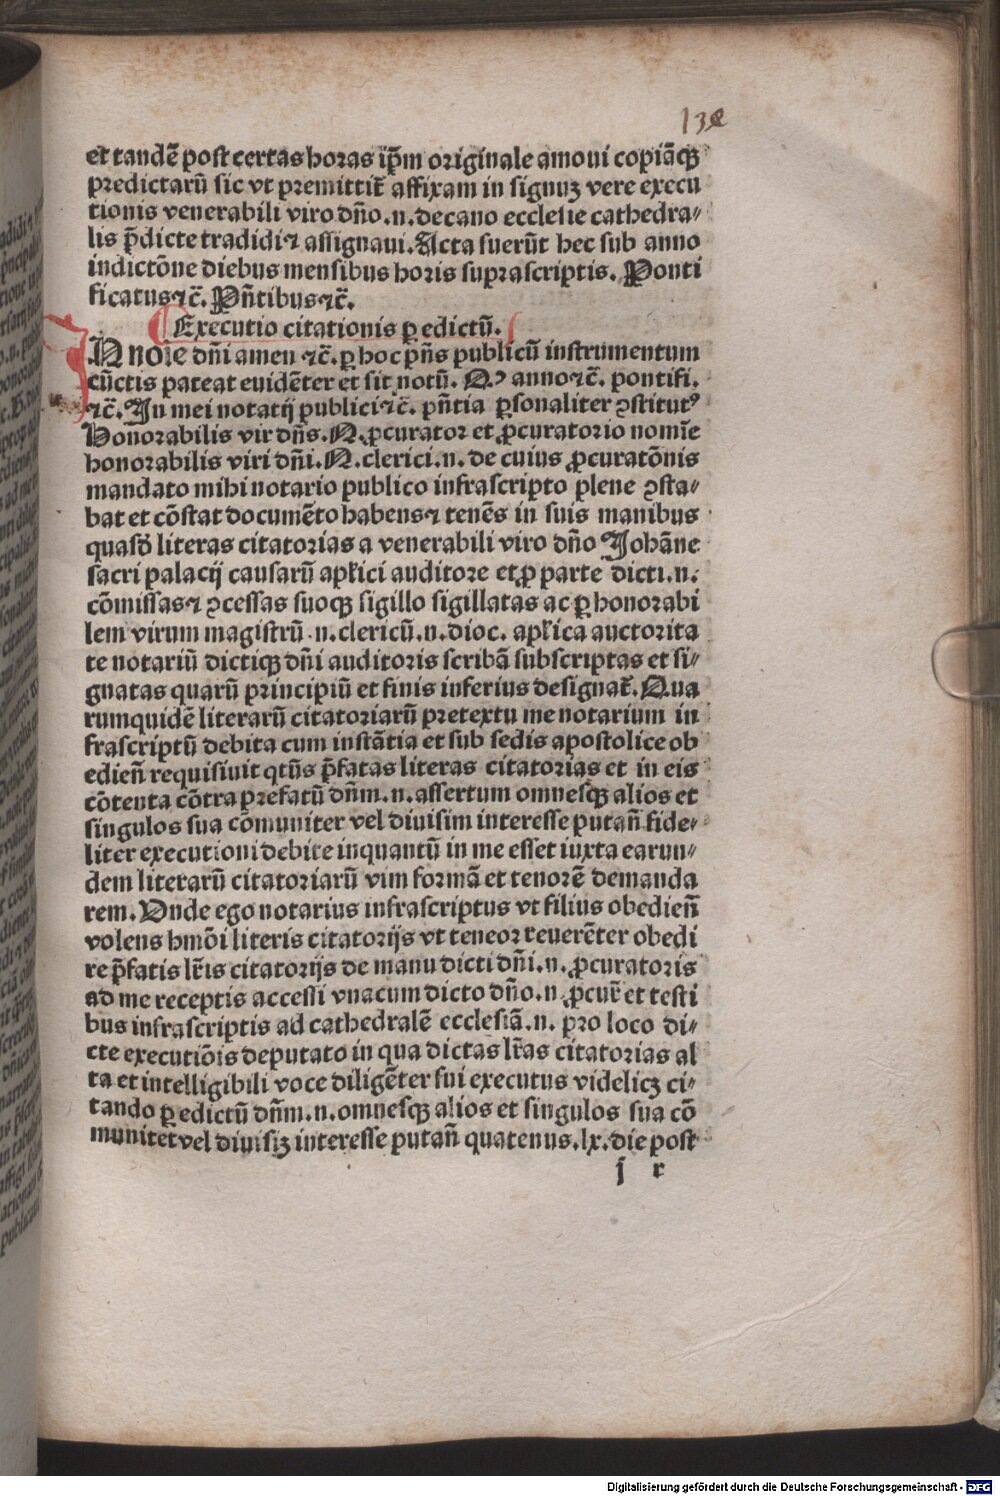 132
et tandē post certas horas ip̄m originale amoui copiāqꝫ
predictarū sic vt premittit̄ affixam in signuꝫ vere execu
tionis venerabili viro dño.n.decano ecclesie cathedra⸗
lis p̄dicte tradidi ⁊ assignaui. Acta fuerūt hec sub anno
indictōne diebus mensibus horis suprascriptis. Ponti
ficatus ⁊c̄. Pñtibus ⁊c̄.
Executio citationis ꝑ edictū.
IN noīe dñi amen ⁊c̄. ꝑ hoc p̄ns publicū instrumentum
cūctis pateat euidēter et sit notū. Qꝯ anno ⁊c̄. pontifi.
⁊c̄. In mei notarij publici ⁊c̄. pñtia ꝑsonaliter ꝯstitutꝰ
Honorabilis vir dñs. N. ꝓcurator et ꝓcuratorio nomīe
honorabilis viri dñi. N. clerici.n. de cuius ꝓcuratōnis
mandato mihi notario publico infrascripto plene ꝯsta⸗
bat et cōstat documēto habens ⁊ tenēs in suis manibus
quasdā literas citatorias a venerabili viro dño Johāne
sacri palacij causarū apl̄ici auditore et ꝓ parte dicti.n.
cōmissas ⁊ ꝯcessas suoqꝫ sigillo sigillatas ac ꝑ honorabi
lem virum magistrū.n.clericū.n.dioc. apl̄ica auctorita
te notariū dictiqꝫ dñi auditoris scribā subscriptas et si⸗
gnatas quarū principiū et finis inferius designat̄. Qua
rumquidē literarū citatoriarū pretextu me notarium in
frascriptū debita cum instātia et sub sedis apostolice ob
edieñ requisiuit qtūs p̄fatas literas citatorias et in eis
cōtenta cōtra prefatū dñm.n.assertum omnesqꝫ alios et
singulos sua cōmuniter vel diuisim interesse putañ fide⸗
liter executioni debite inquantū in me esset iuxta earun⸗
dem literarū citatoriarū vim formā et tenorē demanda
rem. Vnde ego notarius infrascriptus vt filius obedieñ
volens hmōi literis citatorijs vt teneor reuerēter obedi
re p̄fatis lr̄is citatorijs de manu dicti dñi.n. ꝓcuratoris
ad me receptis accessi vnacum dicto dño.n ꝓcur̄ et testi
bus infrascriptis ad cathedralē ecclesiā.n. pro loco di⸗
cte executiōis deputato in qua dictas lr̄as citatorias al
ta et intelligibili voce diligēter fui executus videlicꝫ ci⸗
tando ꝑ edictū dñm.n.omnesqꝫ alios et singulos sua cō
munitet vel diuisiꝫ interesse putañ quatenus.lx.die post
j r
Digitalisierung gefördert durch die Deutsche Forschungsgemeinschaft - DFG